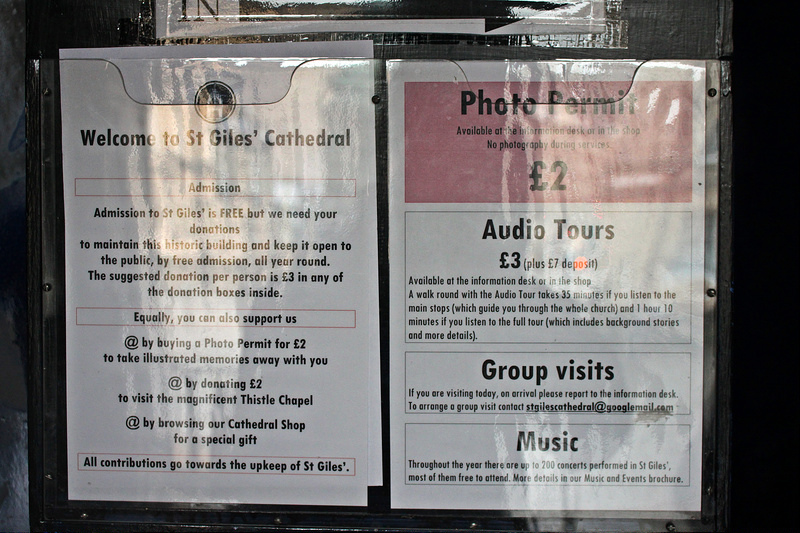 IN
Welcome to St Giles' Cathedral
Admission
Admission to St Giles' is FREE but we need your
donations
to maintain this historic building and keep it open to
the public, by free admission, all year round.
The suggested donation per person is £3 in any of
the donation boxes inside.
Equally, you can also support us
@ by buying a Photo Permit for £2
to take illustrated memories away with you
@ by donating £2
to visit the magnificent Thistle Chapel
@ by browsing our Cathedral Shop
for a special gift
All contributions go towards the upkeep of St Giles'.
Photo Permit
Available at the information desk or in the shop
No photography during services
£2
Audio Tours
£3 (plus £7 deposit)
Available at the information desk or in the shop
A walk round with the Audio Tour takes 35 minutes if you listen to the
main stops (which guide you through the whole church) and 1 hour 10
minutes if you listen to the full tour (which includes background stories
and more details).
Group visits
If you are visiting today, on arrival please report to the information desk.
To arrange a group visit contact stgilescathedral@googlemail.com
Music
Throughout the year there are up to 200 concerts performed in St Giles',
most of them free to attend. More details in our Music and Events brochure.